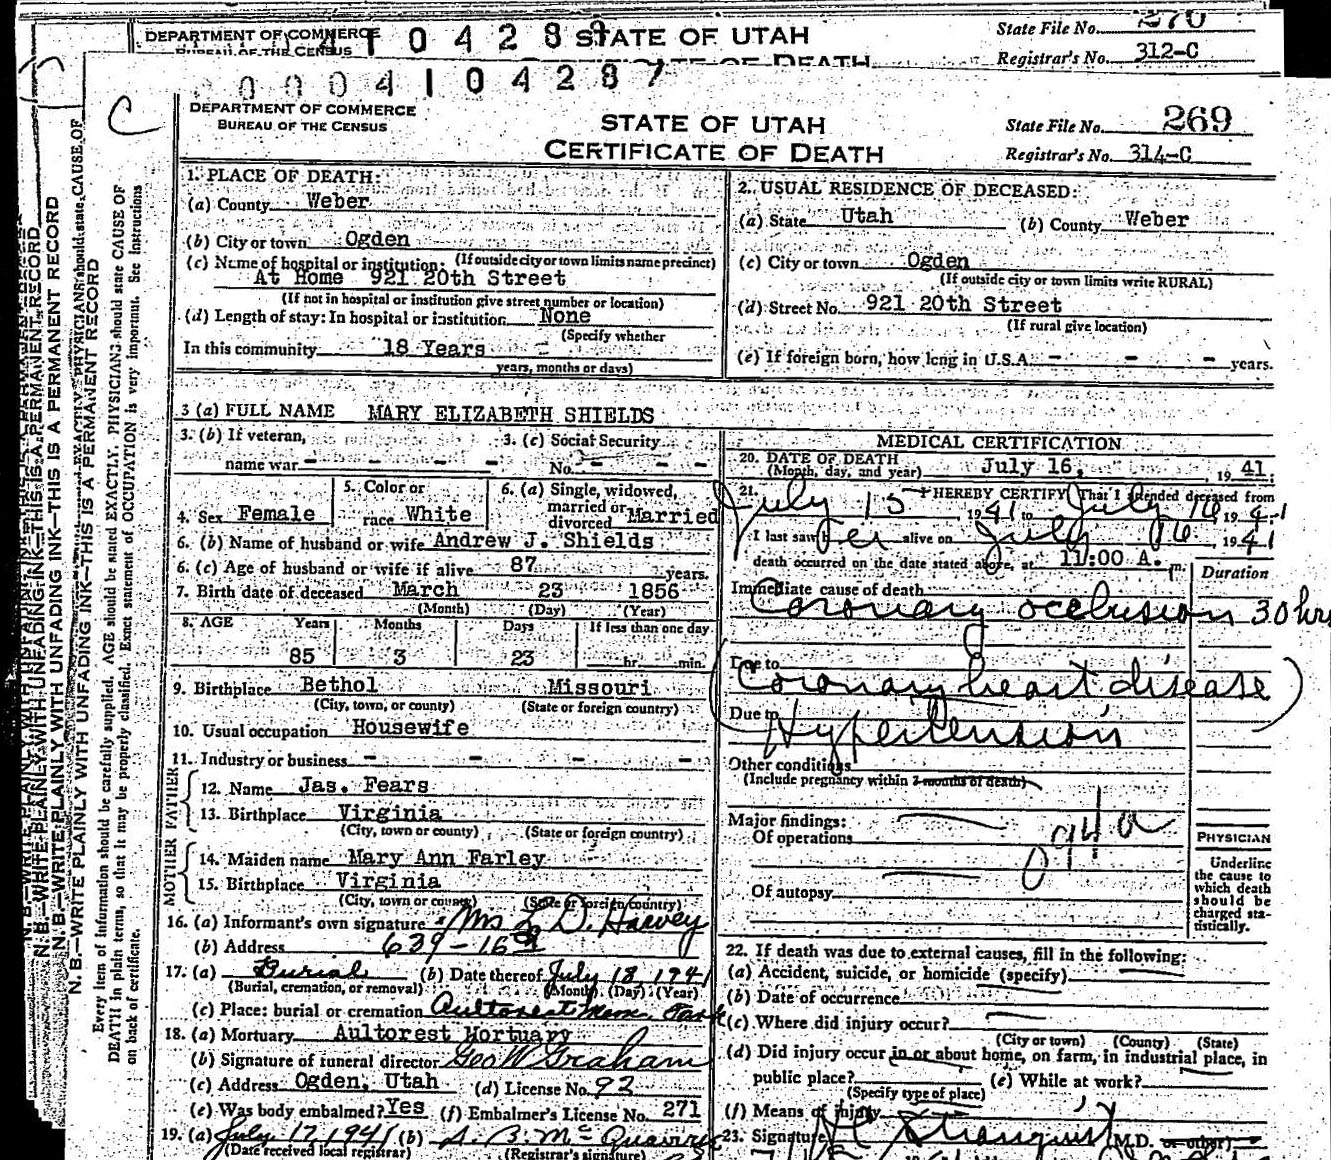 DEPARTMENT OF COMMERCE
BUREAU OF THE CENSUS
STATE OF UTAH
State File No. 270
Registrar's No. 312-C
0004104287
C
DEPARTMENT OF COMMERCE
BUREAU OF THE CENSUS
STATE OF UTAH
CERTIFICATE OF DEATH
State File No. 269
Registrar's No. 314-C
1. PLACE OF DEATH:
(a) County Weber
(b) City or town Ogden
(If outside city or town limits name precinct)
(c) Name of hospital or institution:
At Home 921 20th Street
(If not in hospital or institution give street number or location)
(d) Length of stay: In hospital or institution None
(Specify whether
In this community 18 Years
years, months or days)
2. USUAL RESIDENCE OF DECEASED:
(a) State Utah (b) County Weber
(c) City or town Ogden
(If outside city or town limits write RURAL)
(d) Street No. 921 20th Street
(If rural give location)
(e) If foreign born, how long in U.S.A. - - - years.
3 (a) FULL NAME MARY ELIZABETH SHIELDS
3. (b) If veteran,
name war - - - -
3. (c) Social Security
No. - - -
4. Sex Female
5. Color or
race White
6. (a) Single, widowed,
married or
divorced Married
6. (b) Name of husband or wife Andrew J. Shields
6. (c) Age of husband or wife if alive 87 years.
7. Birth date of deceased March 23 1856
(Month) (Day) (Year)
8. AGE Years Months Days If less than one day
85 3 23 hr. min.
9. Birthplace Bethol Missouri
(City, town, or county) (State or foreign country)
10. Usual occupation Housewife
11. Industry or business - - - -
FATHER
12. Name Jas. Fears
13. Birthplace Virginia
(City, town or county) (State or foreign country)
MOTHER
14. Maiden name Mary Ann Farley
15. Birthplace Virginia
(City, town or county) (State or foreign country)
16. (a) Informant's own signature Mrs L. D. Harvey
(b) Address 639 - 16th
17. (a) Burial (b) Date thereof July 18, 1941
(Burial, cremation, or removal) (Month) (Day) (Year)
(c) Place: burial or cremation Aultorest Mem. Park
18. (a) Mortuary Aultorest Mortuary
(b) Signature of funeral director Geo W Graham
(c) Address Ogden, Utah (d) License No. 92
(e) Was body embalmed? Yes (f) Embalmer's License No. 271
19. (a) July 17, 1941 (b)
(Date received local registrar) (Registrar's signature)
MEDICAL CERTIFICATION
20. DATE OF DEATH
(Month, day, and year) July 16, 19 41
21. I HEREBY CERTIFY That I attended deceased from
July 15 1941 to July 16, 1941
I last saw her alive on July 16, 1941
death occurred on the date stated above, at 11:00 A. m.
Duration
Immediate cause of death
Coronary occlusion 30 hrs
Due to
Coronary heart disease
Due to
Hypertension
Other conditions
(Include pregnancy within 3 months of death)
Major findings:
Of operations
094a
Of autopsy
PHYSICIAN
Underline
the cause to
which death
should be
charged sta-
tistically.
22. If death was due to external causes, fill in the following:
(a) Accident, suicide, or homicide (specify)
(b) Date of occurrence
(c) Where did injury occur?
(City or town) (County) (State)
(d) Did injury occur in or about home, on farm, in industrial place, in
public place? (e) While at work?
(Specify type of place)
(f) Means of injury
23. Signature (M.D. or other)
N.B.—WRITE PLAINLY WITH UNFADING INK—THIS IS A PERMANENT RECORD
Every item of information should be carefully supplied. AGE should be stated EXACTLY. PHYSICIANS should state CAUSE OF
DEATH in plain terms, so that it may be properly classified. Exact statement of OCCUPATION is very important. See instructions
on back of certificate.